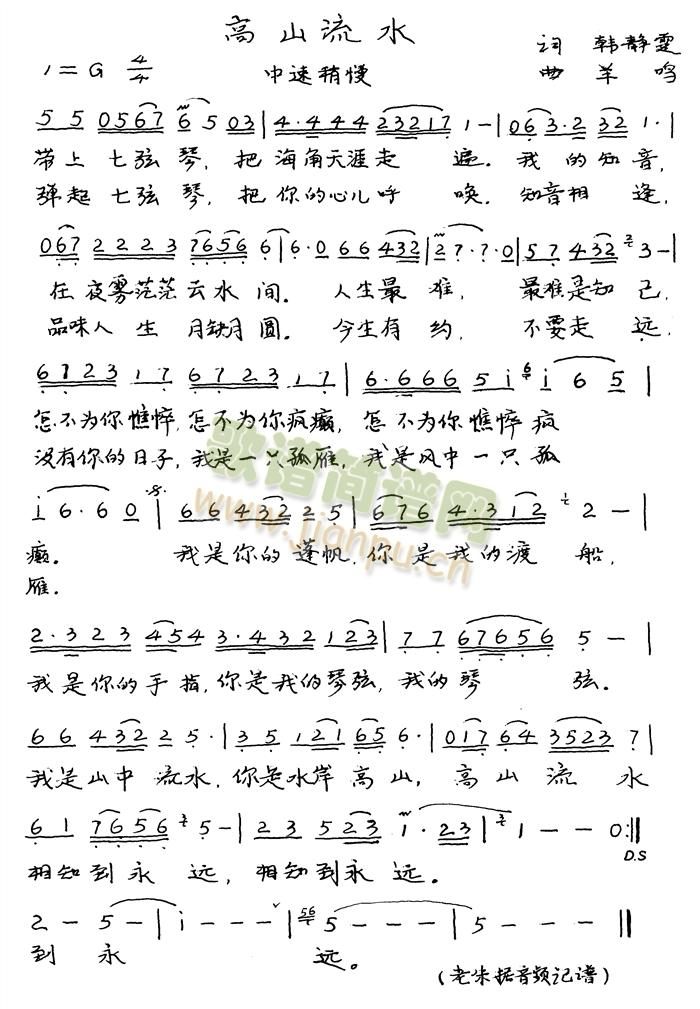 高山流水
词 韩静霆
1=G 4/4 中速稍慢 曲 羊鸣
5 5 0567 6 5 03 | 4·444 23217 1— | 063·2 32 1· |
带上七弦琴，把海角天涯走遍。我的知音，
弹起七弦琴，把你的心儿呼唤。知音相逢，
067 2223 7656 6 | 6·0 66 432 | 2 7··7·0 | 57 432 3— |
在夜雾茫茫云水间。人生最难，最难是知己，
品味人生月缺月圆。今生有约，不要走远，
6723 17 6723 17 | 6·666 5i i 6 5 |
怎不为你憔悴，怎不为你疯癫，怎不为你憔悴疯
没有你的日子，我是一只孤雁，我是风中一只孤
i 6·6 0 | 66 432 2·5 | 676 4·312 2 — |
癫。我是你的蓬帆，你是我的渡船，
雁。
2·323 454 3·432 123 | 77 67656 5 — |
我是你的手指，你是我的琴弦，我的琴弦。
66 432 25· | 35 121 65 6· | 017 64 3523 7 |
我是山中流水，你是水岸高山，高山流水
61 7656 5— | 23 523 1·23 | 1 — — 0 :||
D.S
相知到永远，相知到永远。
2 — 5 — | i — — — | 56 5 — — — | 5 — — — ||
到永远。
(老朱据音频记谱)
歌谱简谱网
www.jianpu.cn